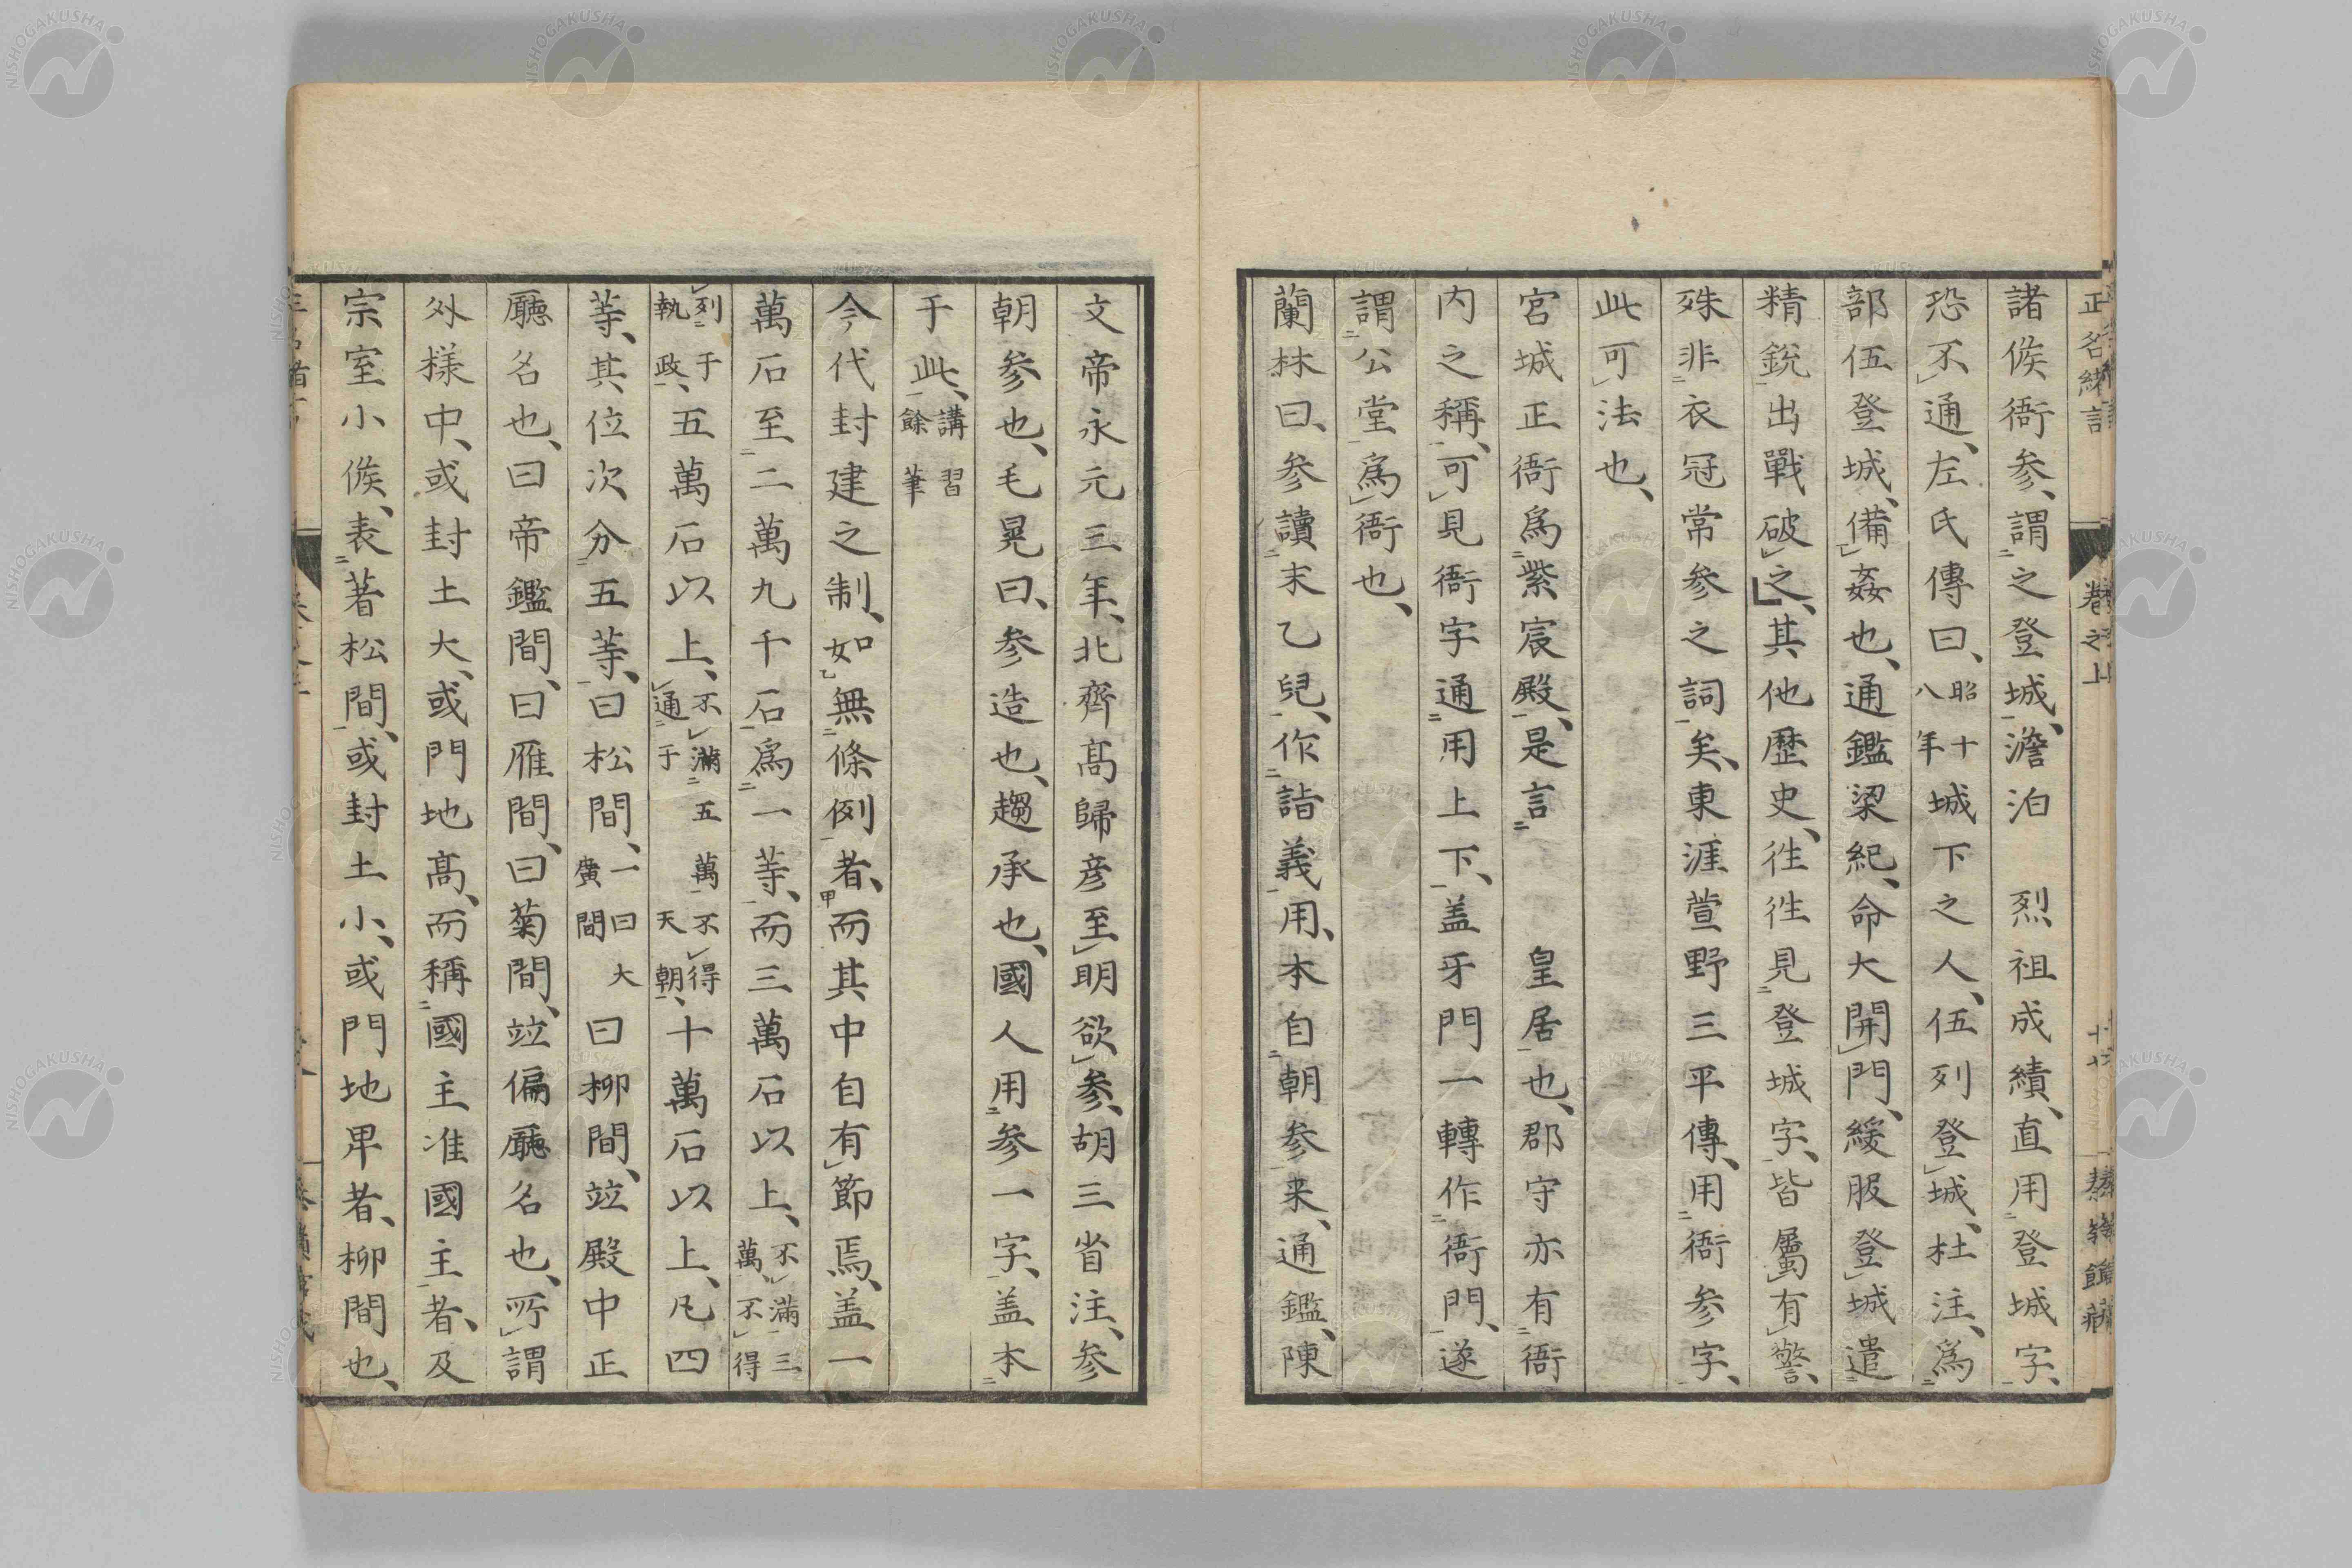 正名緒言 卷之上
諸侯衙参、謂之登城、澹泊 烈祖成績、直用登城字、
恐不通、左氏傳曰、昭十八年城下之人、伍列登城、杜注、爲
部伍登城、備姦也、通鑑梁紀、命大開門、緩服登城遣
精鋭出戰破之、其他歷史、徃徃見登城字、皆屬有警、
殊非衣冠常参之詞矣、東涯萱野三平傳、用衙参字、
此可法也、
宮城正衙爲紫宸殿、是言 皇居也、郡守亦有衙
内之稱、可見衙字通用上下、盖牙門一轉作衙門、遂
謂公堂爲衙也、
蘭林曰、参讀末乙兒、作詣義用、本自朝参来、通鑑、陳
文帝永元三年、北齊髙歸彦至明欲参、胡三省注、参
朝参也、毛晃曰、参造也、趨承也、國人用参一字、盖本
于此、講習餘筆
今代封建之制、如無條例者、而其中自有節焉、盖一
萬石至二萬九千石爲一等、而三萬石以上、不滿三萬、不得
列于執政、五萬石以上、不滿五萬不得通于天朝、十萬石以上、凡四
等、其位次分五等、曰松間、一曰大廣間曰柳間、竝殿中正
廳名也、曰帝鑑間、曰雁間、曰菊間、竝偏廳名也、所謂
外樣中、或封土大、或門地髙、而稱國主准國主者、及
宗室小侯、表著松間、或封土小、或門地卑者、柳間也、